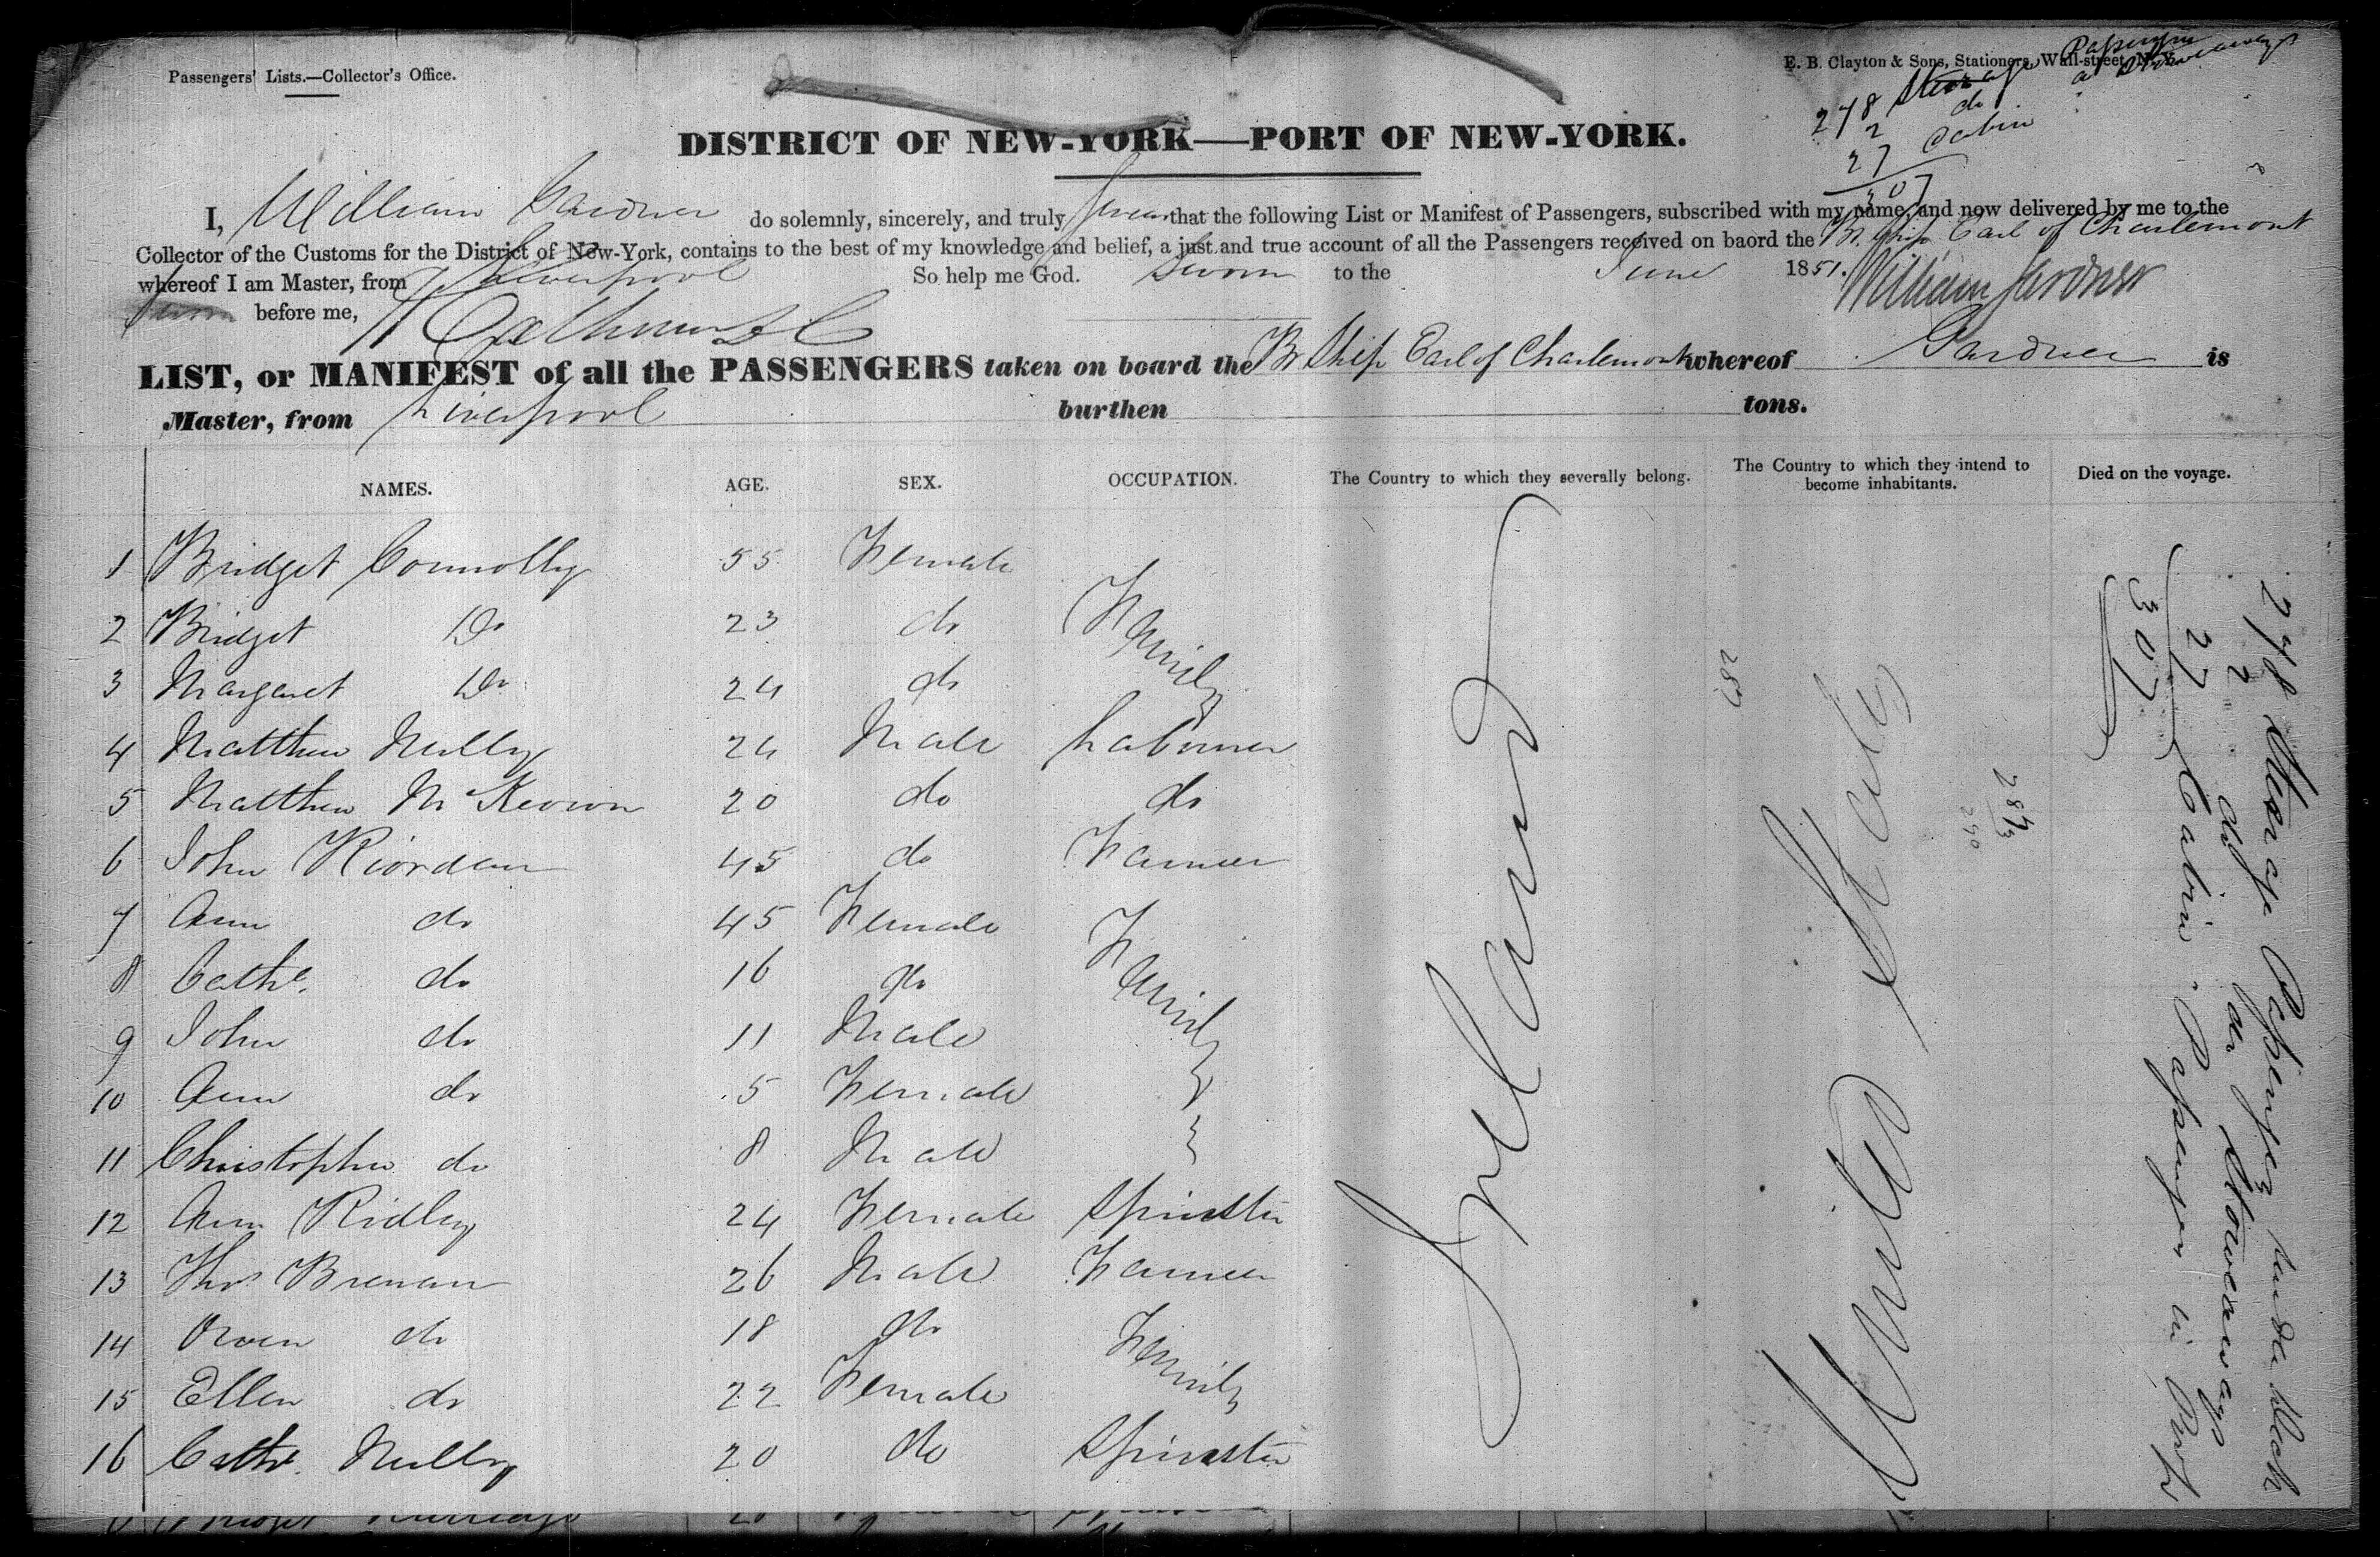 Passengers' Lists.—Collector's Office.
E. B. Clayton & Sons, Stationers, Wall-street, N.Y.
278 Steerage Passengers
2 do a Stowaways
27 Cabin
307
DISTRICT OF NEW-YORK—PORT OF NEW-YORK.
I, William Gardner do solemnly, sincerely, and truly swear that the following List or Manifest of Passengers, subscribed with my name, and now delivered by me to the
Collector of the Customs for the District of New-York, contains to the best of my knowledge and belief, a just and true account of all the Passengers received on baord the Br. Ship Earl of Charlemont
whereof I am Master, from Liverpool So help me God. Sworn to the June 1851. William Gardner
Sworn before me,
LIST, or MANIFEST of all the PASSENGERS taken on board the Br Ship Earl of Charlemont whereof Gardner is
Master, from Liverpool burthen tons.
NAMES. AGE. SEX. OCCUPATION. The Country to which they severally belong. The Country to which they intend to become inhabitants. Died on the voyage.
1 Bridget Connolly 55 Female
2 Bridget Do 23 do Family
3 Margaret Do 24 do
4 Matthew Nully 24 Male Labourer
5 Matthew McKeown 20 do do
6 John Riordan 45 do Farmer
7 Ann do 45 Female
8 Cathe. do 16 do Family
9 John do 11 Male
10 Ann do 5 Female
11 Christopher do 8 Male
12 Ann Ridley 24 Female Spinster
13 Thos Brenan 26 Male Farmer
14 Owen do 18 do Family
15 Ellen do 22 Female
16 Cathe. Nully 20 do Spinster
Ireland
United States
287
287
3
290
278 Steerage Passengers under Deck
2 do do Stowaways
27 Cabin Passengers in Poop
307